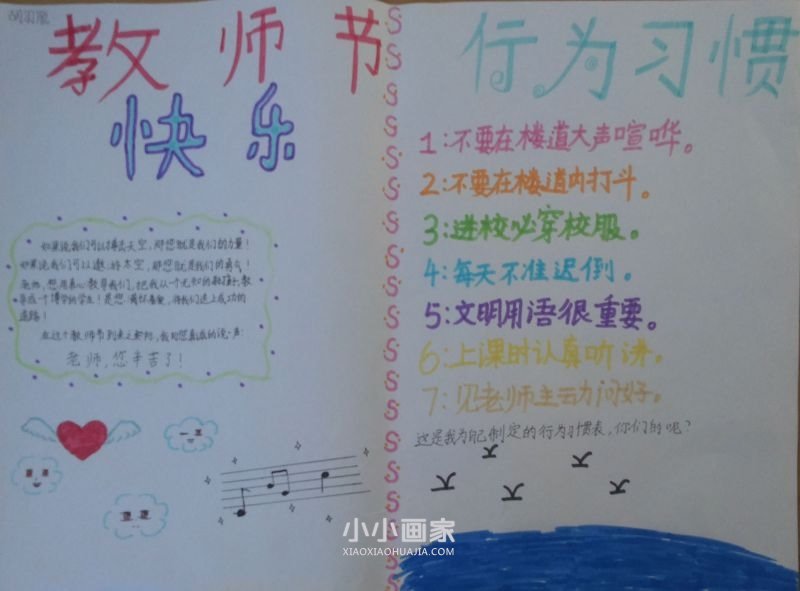 教师节
快乐
如果说我们可以搏击天空,那您就是我们的力量!
如果说我们可以遨游太空,那您就是我们的勇气!
老师,您用真心教导我们,把我从一个无知的孩子,教
导成个博学的学生!是您
将我们送上成功的
道路!
在这个教师节到来之际,我向您真诚的说声:
老师,您辛苦了!
行为习惯
1:不要在楼道大声喧哗。
2:不要在楼道内打斗。
3:进校必穿校服。
4:每天不准迟到。
5:文明用语很重要。
6:上课时认真听讲。
7:见老师主动问好。
这是我为自己制定的行为习惯表,你们的呢?
小小画家
XIAOXIAOHUAJIA.COM